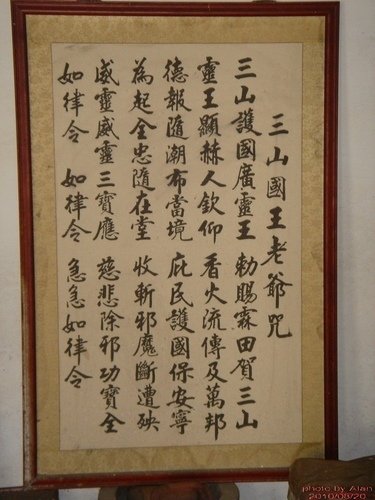 三山國王老爺咒
三山護國廣靈王 勅賜霖田賀三山
靈王顯赫人欽仰 香火流傳及萬邦
德報隨潮布當境 庇民護國保安寧
為起全忠隨在堂 收斬邪魔斷遭殃
威靈威靈三寶應 慈悲除邪功寶全
如律令 如律令 急急如律令
photo by Alan
2010/08/20